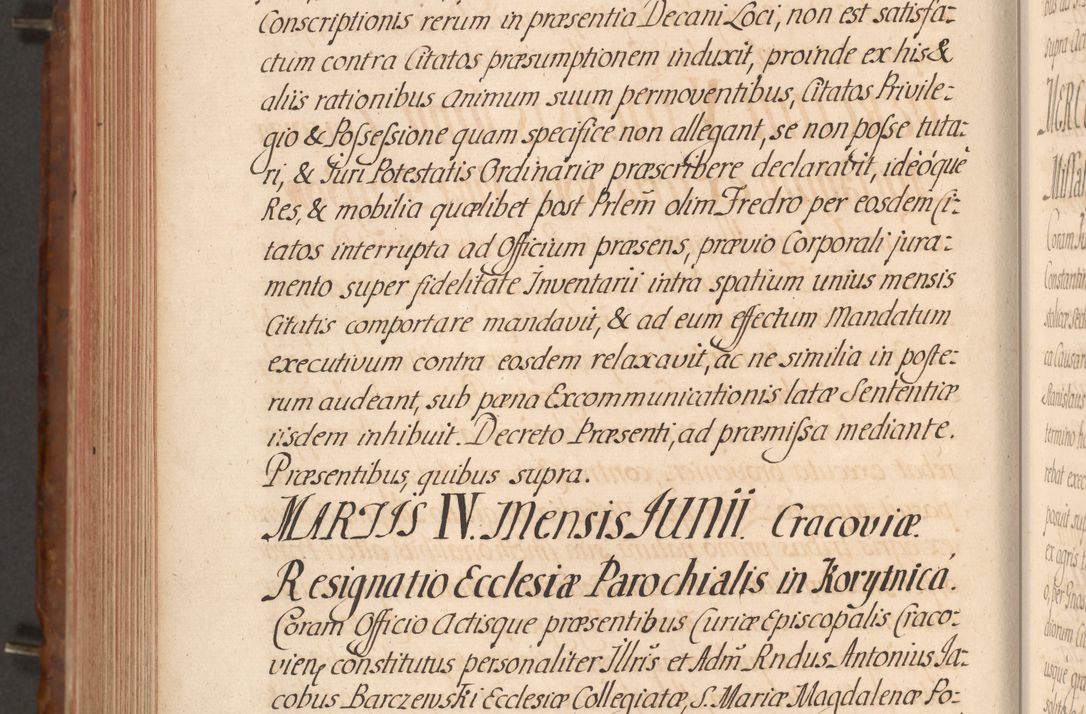 Conscriptionis rerum in præsentia Decani Loci, non est satisfa:
ctum contra Citatos præsumptionem induxit, proinde ex his &
aliis rationibus animum suum permoventibus, Citatos Privile:
gio & Possessione quam specifice non allegant, se non posse tuta:
ri, & Juri Potestatis Ordinariæ præscribere declaravit, ideóque
Res, & mobilia quælibet post Prlem̃ olim Fredro per eosdem Ci:
tatos interrupta ad Officium præsens, prævio Corporali jura:
mento super fidelitate Inventarii intra spatium unius mensis
Citatis comportare mandavit, & ad eum effectum Mandatum
executivum contra eosdem relaxavit, ac ne similia in poste:
rum audeant, sub pæna Excommunicationis latæ Sententiæ
iisdem inhibuit. Decreto Præsenti, ad præmissa mediante.
Præsentibus, quibus supra.
MARTIS IV. Mensis JUNII. Cracoviæ.
Resignatio Ecclesiæ Parochialis in Korytnicá.
Coram Officio Actisque præsentibus Curiæ Episcopalis Craco:
vienę constitutus personaliter Illris̃ et Adm̃ Rndus Antonius Ja:
cobus Barczewski Ecclesiæ Collegiatæ, S. Mariæ Magdalenæ Po: